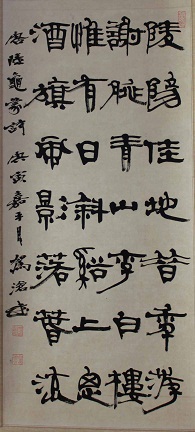 陵陽佳地昔年遊
謝朓青山李白樓
惟有日斜谿上思
酒旗風景落春流
唐陸龜蒙詩 庚寅嘉平月